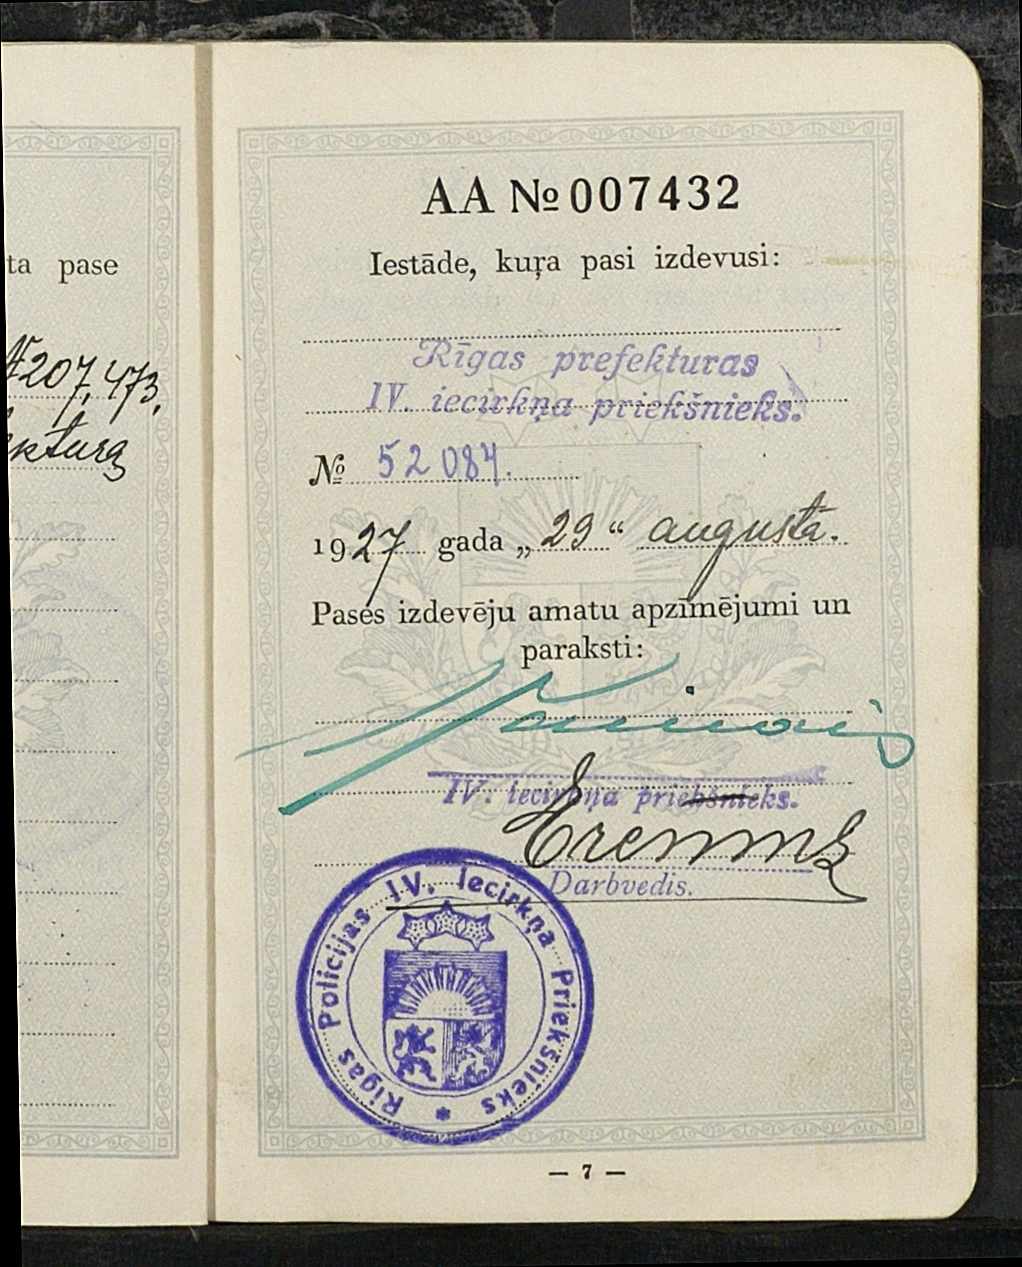 ta pase
207,473,
AA № 007432
Iestāde, kuŗa pasi izdevusi:
Rīgas prefekturas
IV. iecirkņa priekšnieks.
№ 52084.
1927 gada „29“ augustā.
Pases izdevēju amatu apzīmējumi un
paraksti:
IV. iecirkņa priekšnieks.
Darbvedis.
Rīgas Policijas IV. Iecirkņa Priekšnieks *
— 7 —